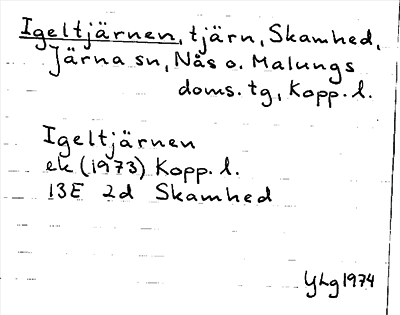 Igeltjärnen, tjärn, Skamhed,
Järna sn, Nås o. Malungs
doms. tg, Kopp. l.
Igeltjärnen
ek (1973) Kopp. l.
13E 2d Skamhed
YLg 1974